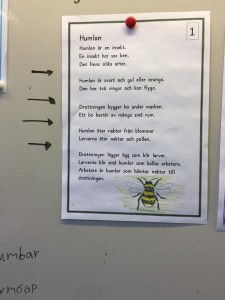 1
Humlan
Humlan är en insekt.
En insekt har sex ben.
Det finns olika arter.
Humlan är svart och gul eller orange.
Den har två vingar och kan flyga.
Drottningen bygger bo under marken.
Ett bo består av många små rum.
Humlan äter nektar från blommor
Larverna äter nektar och pollen.
Drottningen lägger ägg som blir larver.
Larverna blir små humlor som kallas arbetare.
Arbetare är humlor som hämtar nektar till
drottningen.
umbar
rmöap